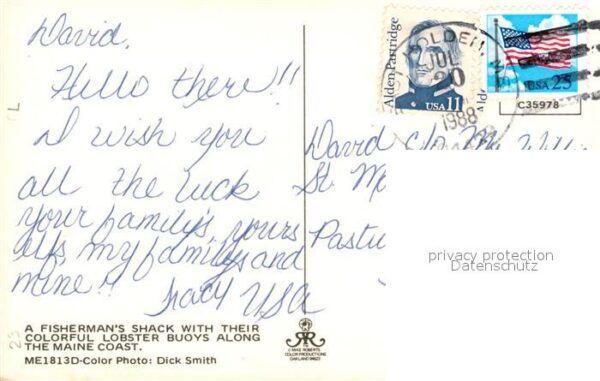 David,
Hello there!!
I wish you
all the luck
your family's, yours
my family's and
mine!!
Tracy USA
Alden Partridge
USA 11
Alden
USA 25
HOLDEN, ME
JUL
20
1988
C35978
David c/o Mr. 
St. 
privacy protection
Datenschutz
A FISHERMAN'S SHACK WITH THEIR
COLORFUL LOBSTER BUOYS ALONG
THE MAINE COAST.
ME1813D-Color Photo: Dick Smith
© MIKE ROBERTS
COLOR PRODUCTIONS
OAKLAND 94623